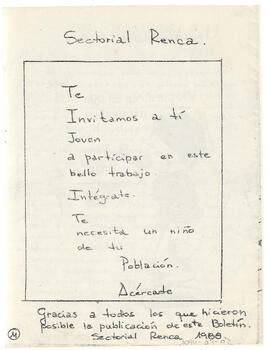 Sectorial Renca.
Te
Invitamos a tí
Joven
a participar en este
bello trabajo.
Intégrate.
Te
necesita un niño
de tu
Población.
Acércate
Gracias a todos los que hicieron
posible la publicación de este Boletín.
Sectorial Renca 1988.